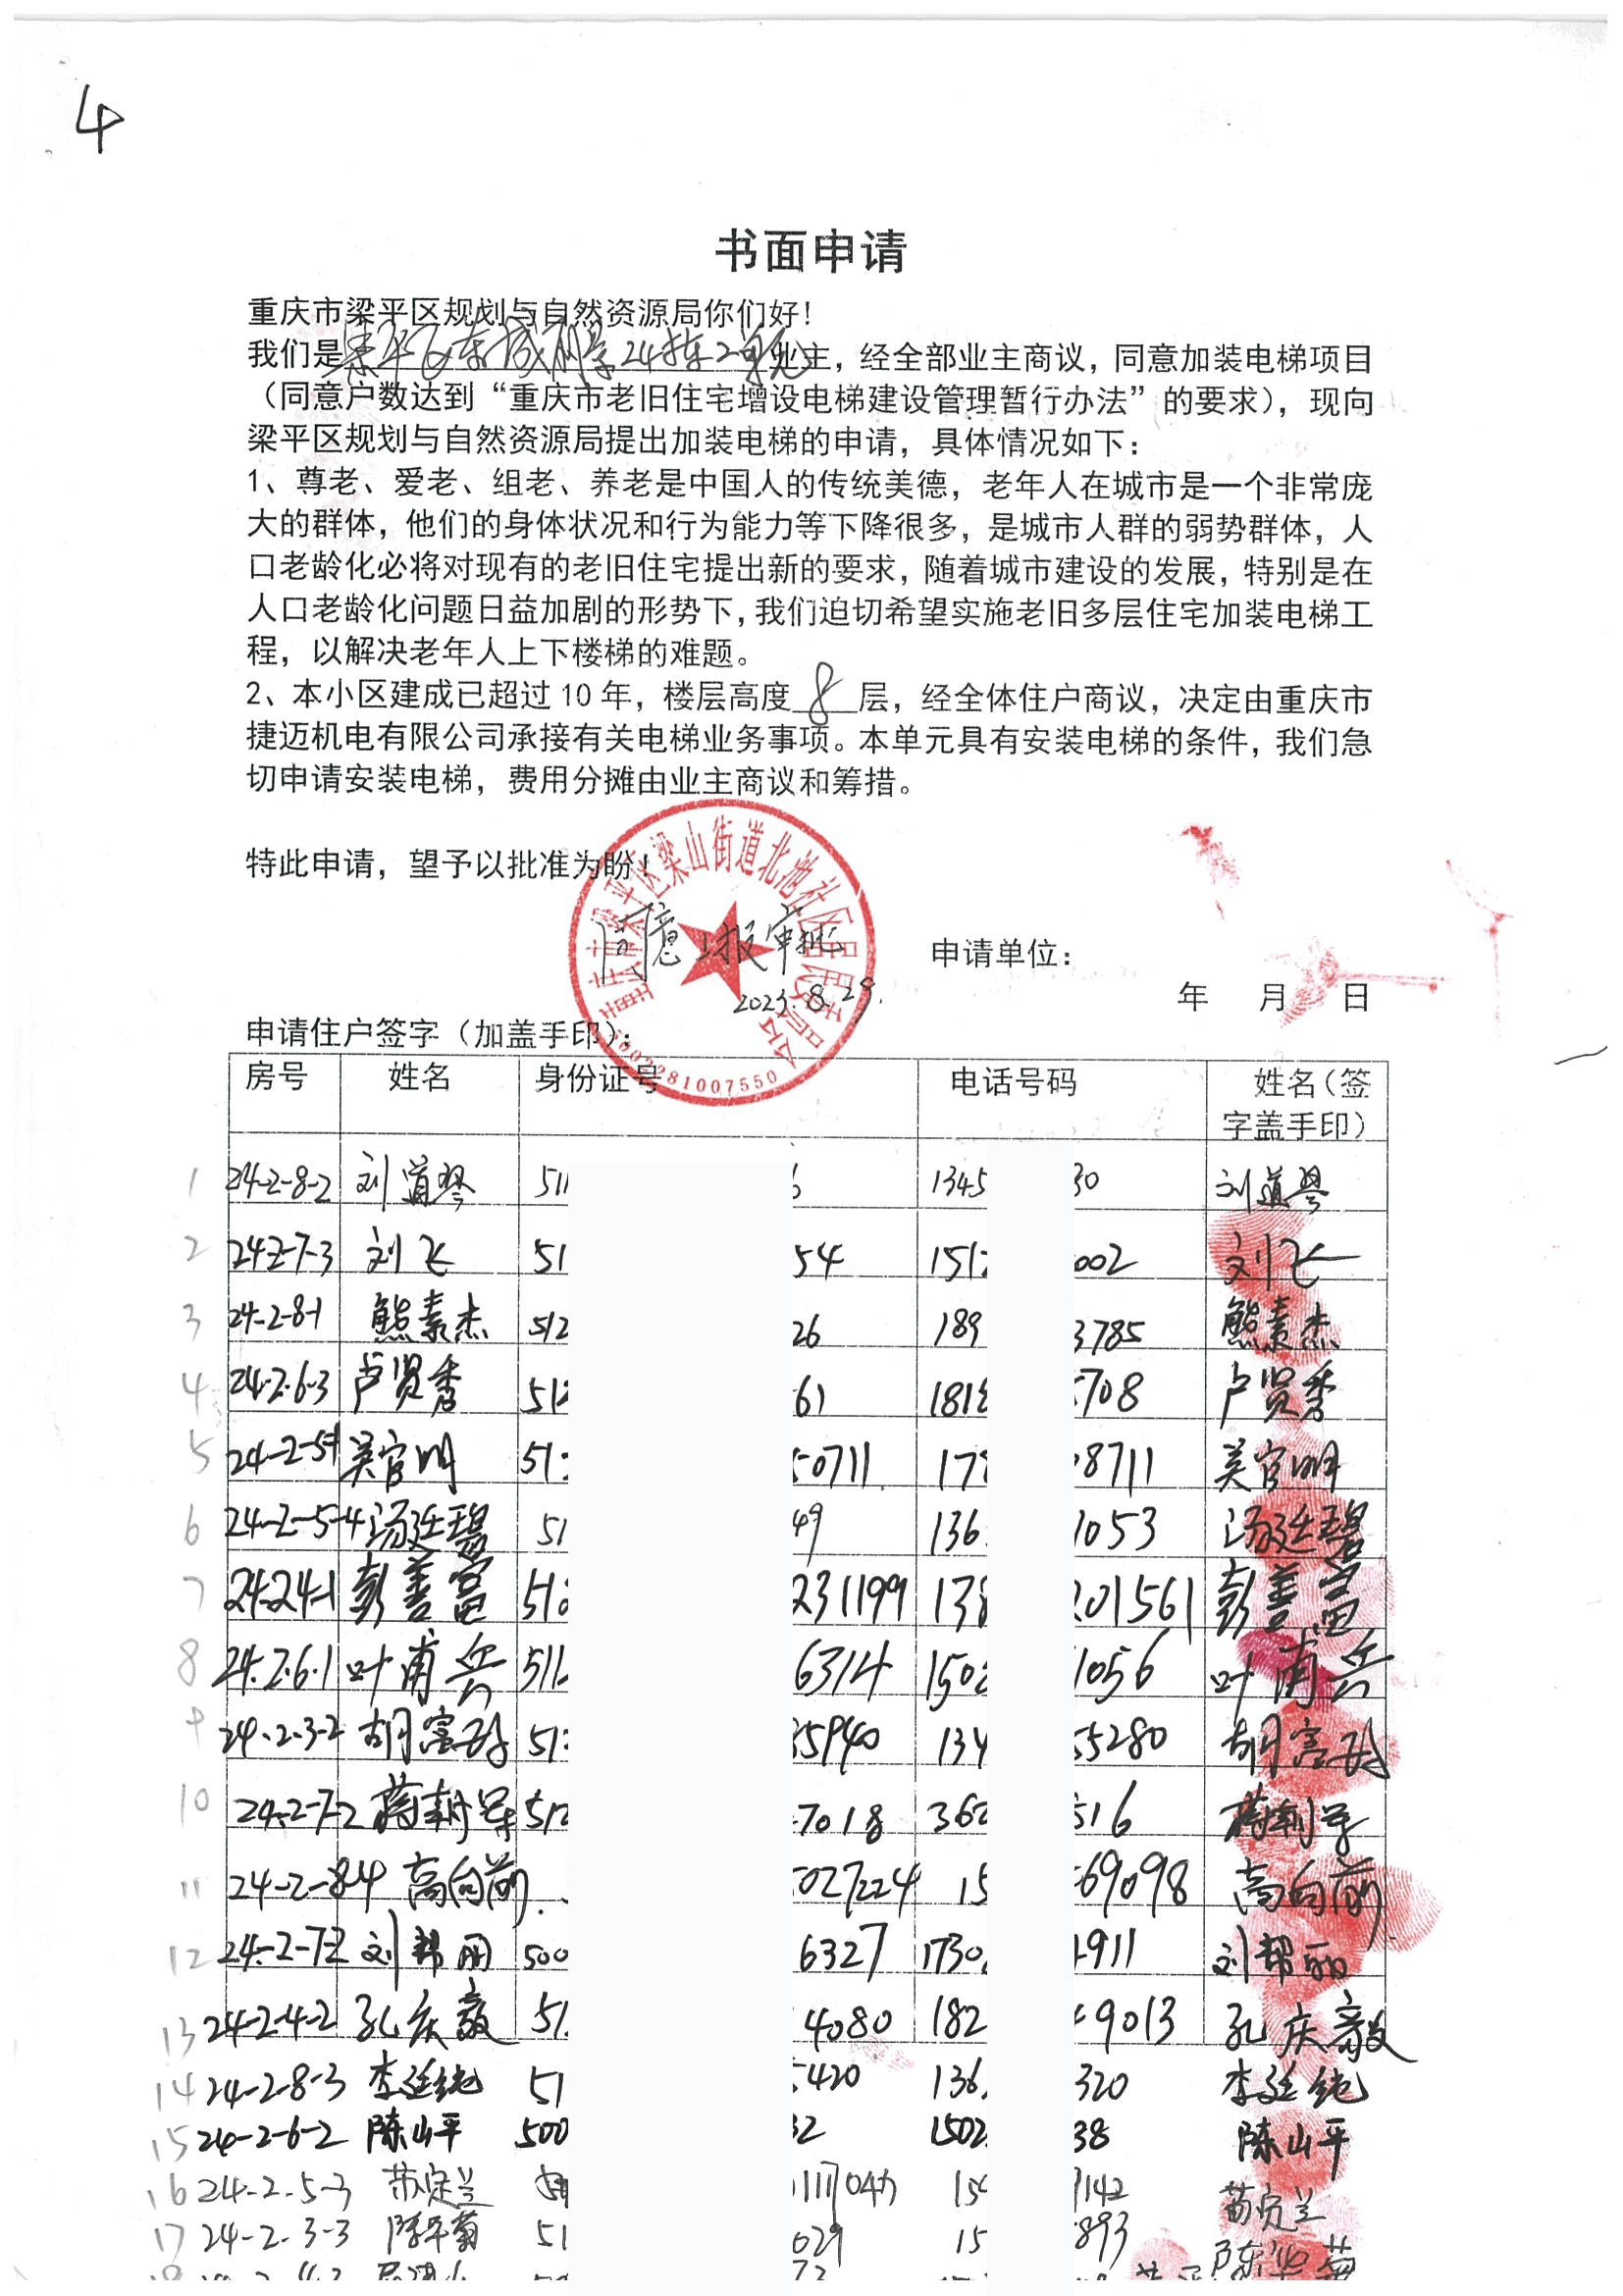 4
书面申请
重庆市梁平区规划与自然资源局你们好！
我们是梁平区东城明景24栋2单元业主，经全部业主商议，同意加装电梯项目
（同意户数达到“重庆市老旧住宅增设电梯建设管理暂行办法”的要求），现向
梁平区规划与自然资源局提出加装电梯的申请，具体情况如下：
1、尊老、爱老、组老、养老是中国人的传统美德，老年人在城市是一个非常庞
大的群体，他们的身体状况和行为能力等下降很多，是城市人群的弱势群体，人
口老龄化必将对现有的老旧住宅提出新的要求，随着城市建设的发展，特别是在
人口老龄化问题日益加剧的形势下，我们迫切希望实施老旧多层住宅加装电梯工
程，以解决老年人上下楼梯的难题。
2、本小区建成已超过10年，楼层高度8层，经全体住户商议，决定由重庆市
捷迈机电有限公司承接有关电梯业务事项。本单元具有安装电梯的条件，我们急
切申请安装电梯，费用分摊由业主商议和筹措。
特此申请，望予以批准为盼！
重庆市梁平区梁山街道北池社区居民委员会
同意上报审批
2023.8.29.
5002281007550
申请单位：
年 月 日
申请住户签字（加盖手印）：
房号 姓名 身份证号 电话号码 姓名（签
字盖手印）
1 24-2-8-2 刘道琴 511 6 1345 30 刘道琴
2 24-2-7-3 刘飞 51 54 151 002 刘飞
3 24-2-8-1 熊素杰 512 26 189 3785 熊素杰
4 24-2-6-3 卢贤秀 512 61 181 708 卢贤秀
5 24-2-5-1 吴官明 51 0711 17 8711 吴官明
6 24-2-5-4 汤廷碧 51 49 136 1053 汤廷碧
7 24-2-4-1 彭善富 51 231199 138 201561 彭善富
8 24.2.6.1 叶甫兵 511 6314 150 1056 叶甫兵
9 24-2-3-2 胡富 51 35940 134 55280 胡富
10 24-2-7-2 蒋朝军 512 7018 362 516 蒋朝军
11 24-2-8-4 高向前 027224 15 69098 高向前
12 24-2-7-2 刘帮丽 500 6327 1730 911 刘帮丽
13 24-2-4-2 孔庆毅 51 4080 182 9013 孔庆毅
14 24-2-8-3 李廷纯 51 5420 136 320 李廷纯
15 24-2-6-2 陈山平 500 32 1502 38 陈山平
16 24-2-5-3 苏定兰 15 1142 苏定兰
17 24-2-3-3 51 029 15 893